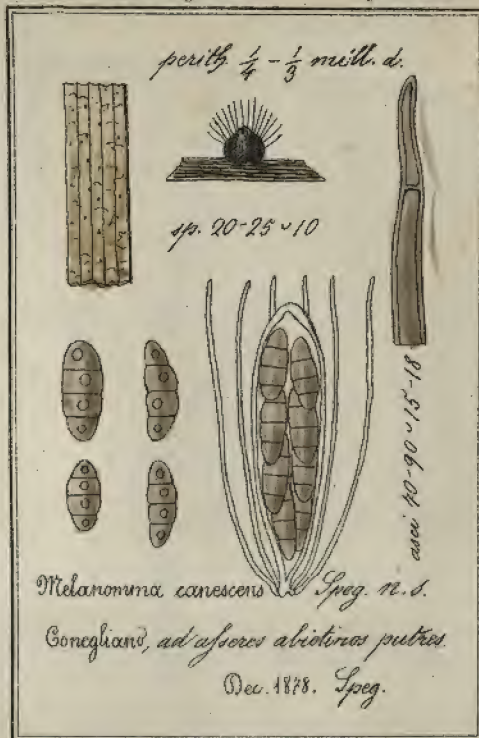 perith. 1/4 - 1/3 mill. d.
sp. 20-25 ⌣ 10
asci 40-90 ⌣ 15-18
Melanomma canescens Speg. n. s.
Conegliano, ad asseres abietinos putres.
Dec. 1878. Speg.